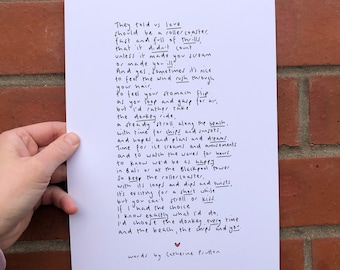 They told us love
should be a rollercoaster
fast and full of thrills,
that it didn't count
unless it made you scream
or made you ill
And yes, sometimes it's nice
to feel the wind rush through
your hair,
to feel your stomach flip
as you loop and gasp for air,
but I'd rather take
the donkey ride,
a steady stroll along the beach,
with time for chips and sunsets,
and hopes and plans and dreams.
Time for ice creams and amusements
and to watch the waves for hours
to know we'd be as happy
in Bali or at the Blackpool tower.
So keep the rollercoaster,
with its loops and dips and twists.
it's exciting for a short while
but you can't stroll or kiss
If I had the choice
I know exactly what I'd do,
I'd choose the donkey every time
and the beach, the chips and you.
words by Catherine Prutton